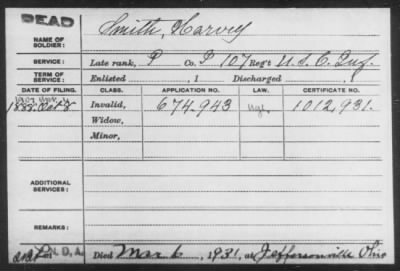 DEAD
NAME OF SOLDIER: Smith, Harvey
SERVICE: Late rank, P Co. P 107 Reg't U.S.C. Inf.
TERM OF SERVICE: Enlisted , 1 Discharged , 1
DATE OF FILING. CLASS. APPLICATION NO. LAW. CERTIFICATE NO.
1907
1888. Oct 8 Invalid, 674.943 1012,931.
Widow,
Minor,
ADDITIONAL SERVICES:
REMARKS:
N. D, A.
Died Mar 6, 1931, at Jeffersonville Ohio